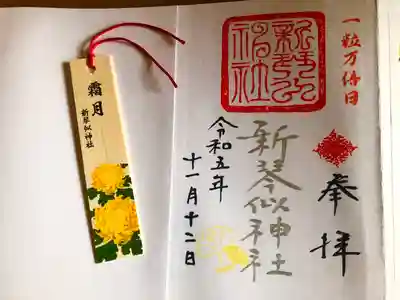 一粒万倍日
奉拝
新琴似神社
令和五年
十一月十二日
霜月
新琴似神社